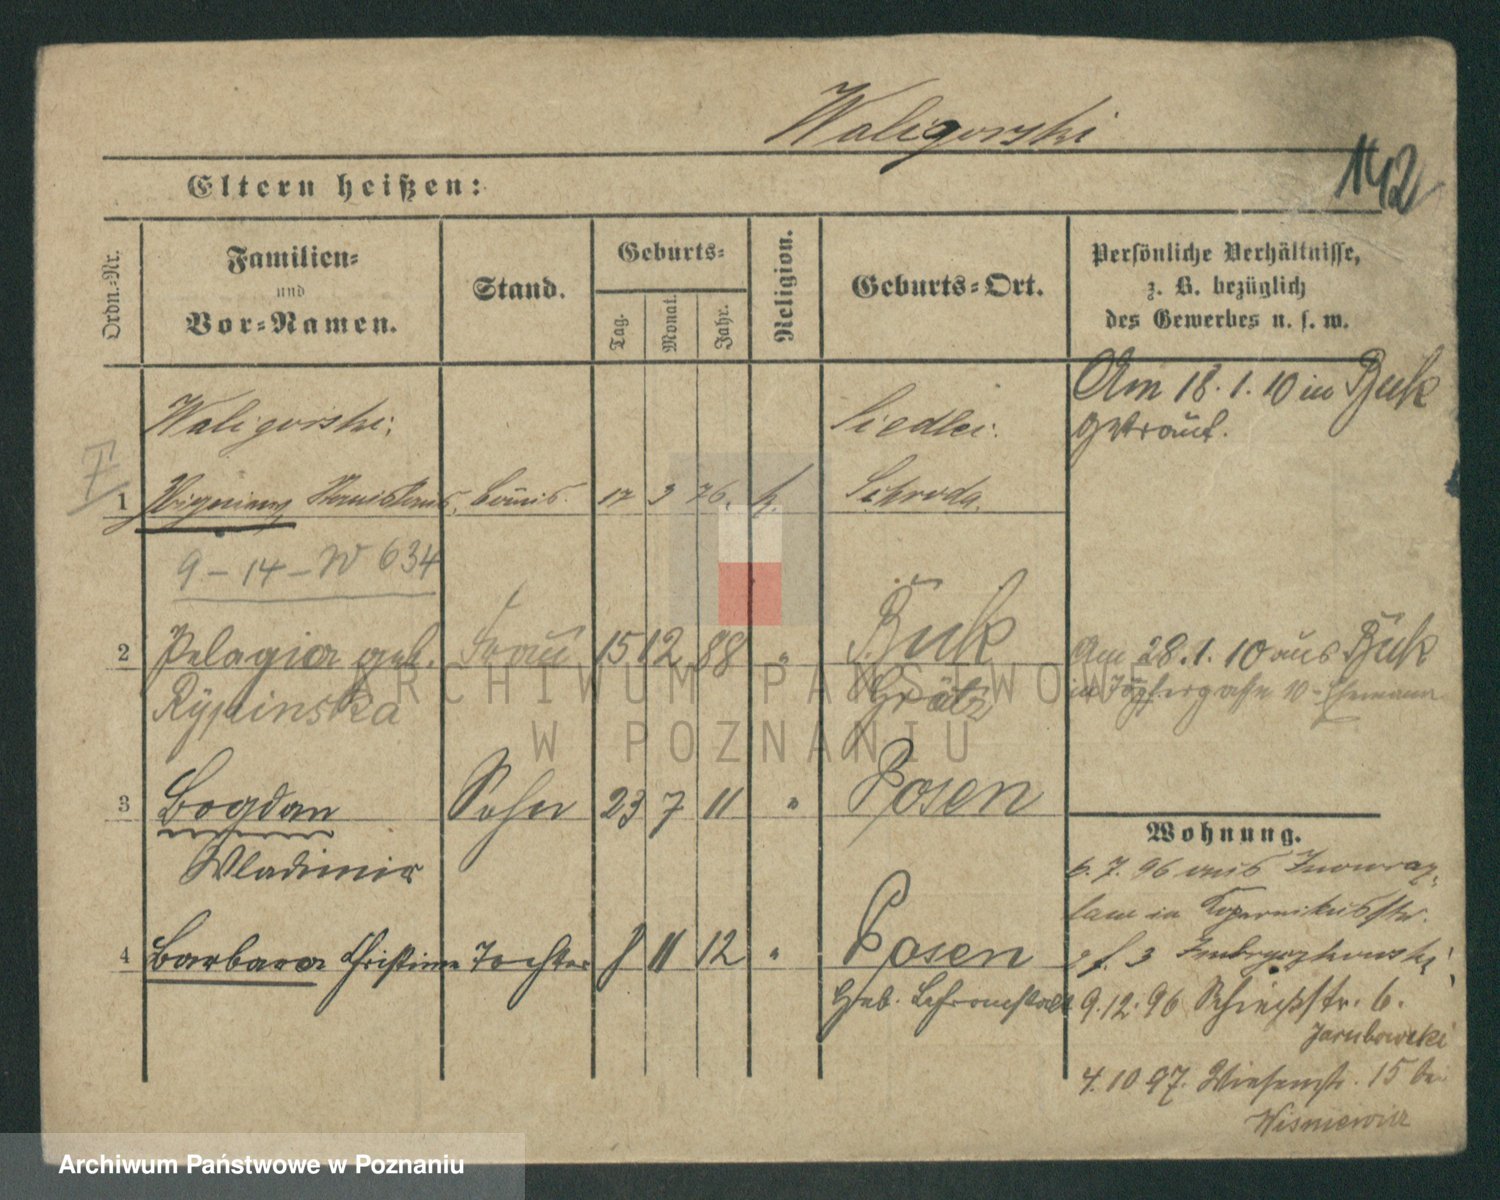 Waligorski
142
Eltern heißen:
Ordn.-Nr.
Familien-
und
Vor-Namen.
Stand.
Geburts-
Tag.
Monat.
Jahr.
Religion.
Geburts-Ort.
Persönliche Verhältnisse,
z. B. bezüglich
des Gewerbes u. s. w.
Waligorski,
Siedlec.
Am 18.1.10 in Buk
getraut.
1 Stanislaus, Comis. 17 3 76. k. Schroda.
9-14-W 634
2 Pelagia geb. Frau 15 12 88 " Buk
Rypinska
Grätz
Am 28.1.10 aus Buk
10 - Ehemann
3 Bogdan Sohn 23 7 11 " Posen
Wladimir
Wohnung.
7. 96 aus Inowraz-
law in Kopernikusstr.
4 Barbara Christine Tochter 8 11 12 " Posen
3
9.12.96 Schießstr. 6.
Jarubowski
4.10.97. Wiesenstr. 15 bei
Wisniewicz
ARCHIWUM PAŃSTWOWE
W POZNANIU
Archiwum Państwowe w Poznaniu